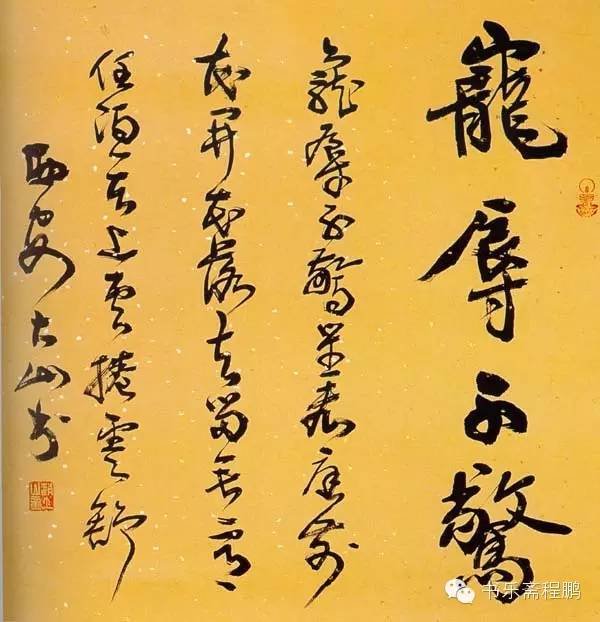 寵辱不驚
寵辱不驚笑看庭前
花開花落去留無意
任随天上雲捲雲舒
西安山书
书乐斋程鹏